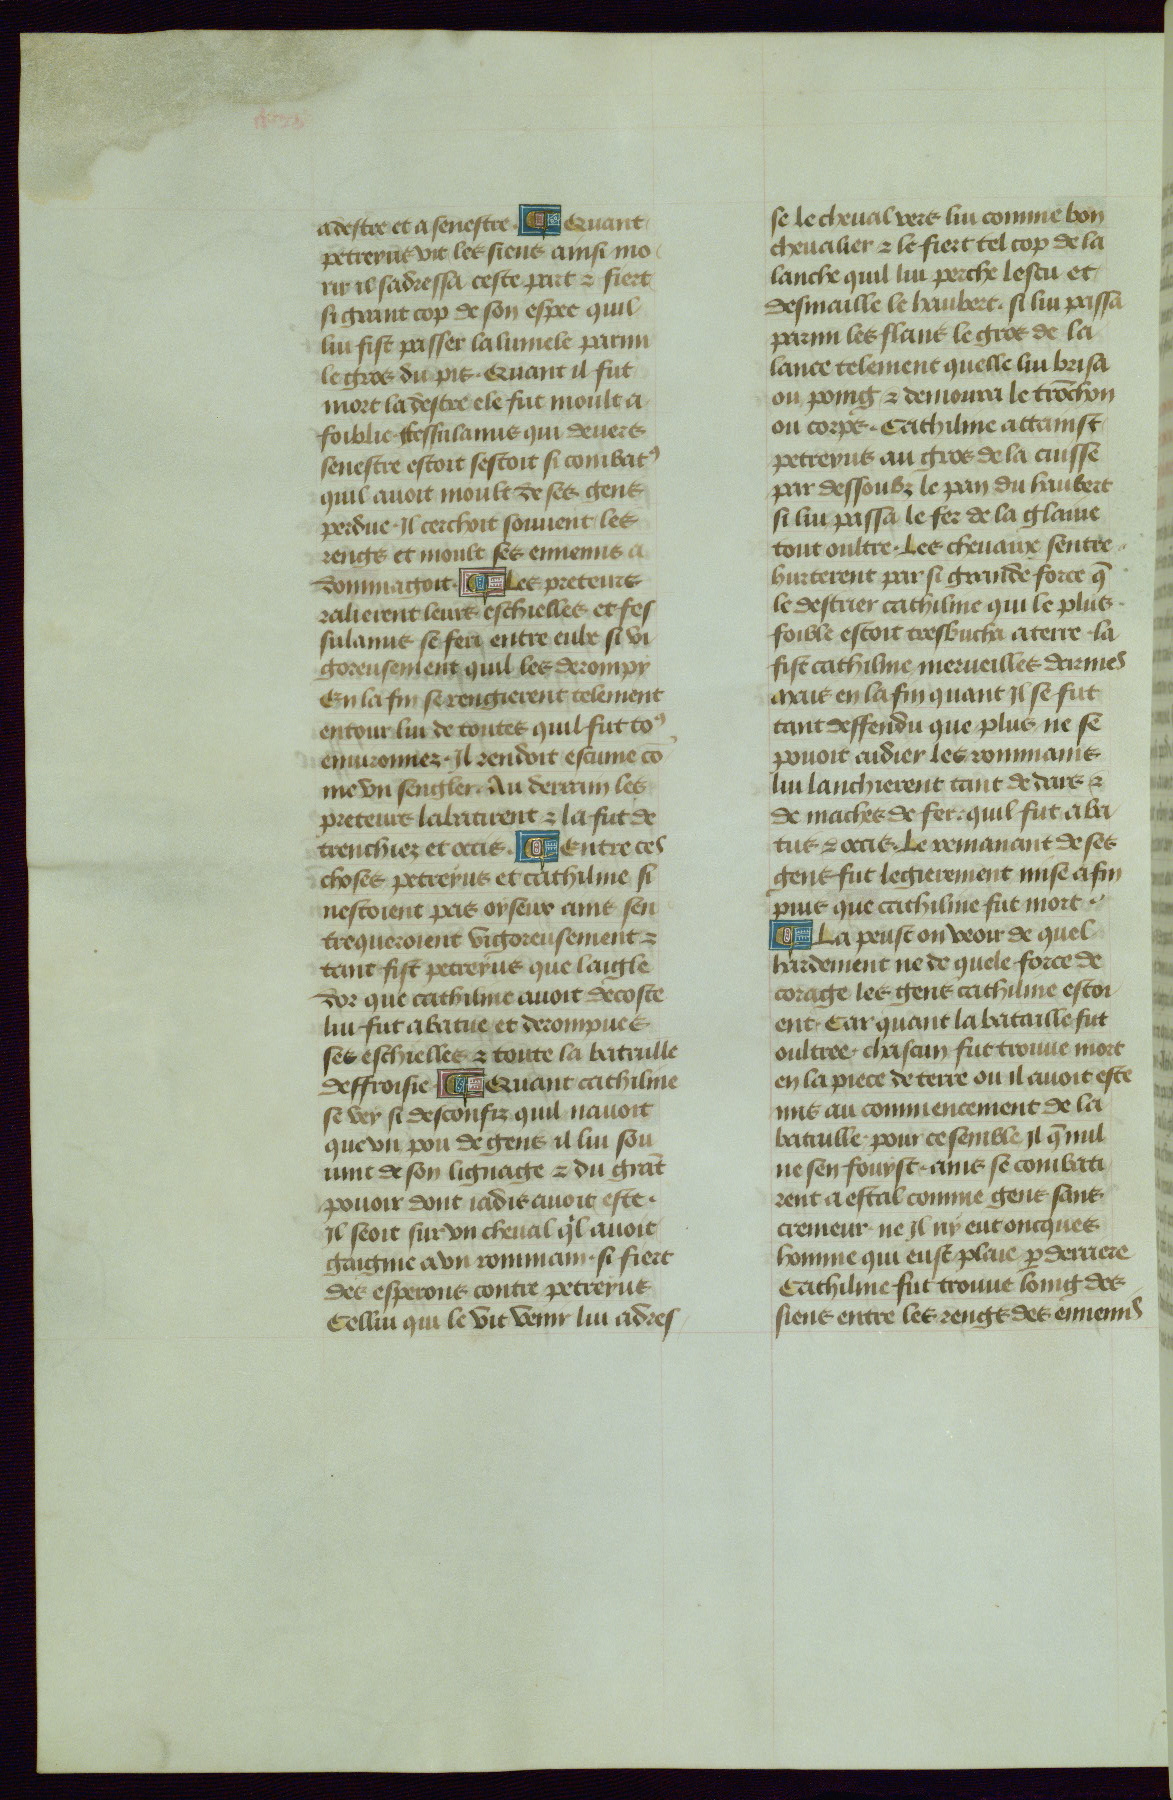 adestre et a senestre. Quant
petreyus vit les siens ainsi mo
rir il sadressa ceste part ⁊ fiert
si grant cop de son espee quil
lui fist passer lalumele parmi
le gros du pis. Quant il fut
mort la destre ele fut moult a
foiblie fessulanus qui devers
senestre estoit sestoit si combatꝰ
quil avoit moult de ses gens
perdue. Il cerchoit souvent les
rengs et moult ses ennemis a
dommagoit. Les preteurs
ralierent leurs eschielles et fes
sulanus se feri entre eulx si vi
goreusement quil les derompy
En la fin se rengierent telement
entour lui de toutes quil fut toꝰ
environnez. Il rendoit escume cō
me vn sengler. Au derrain les
preteurs labatirent ⁊ la fut de
trenchiez et occis. Entre ces
choses petreyus et cathiline si
nestoient pas oyseux ains sen
trequeroient vigoreusement ⁊
tant fist petreyus que laigle
dor que cathiline avoit decoste
lui fut abatue et derompues
ses eschielles ⁊ toute la bataille
deffroisie. Quant cathiline
se vey si desconfiz quil navoit
que vn pou de gens il lui sou
uint de son lignage ⁊ du grāt
pouoir dont iadis avoit este.
Il seoit sur vn cheval ql avoit
gaignie a vn rommain. si fiert
des esperons contre petreyus
Cellui qui le vit venir lui adres
se le cheval vers lui comme bon
chevalier ⁊ le fiert tel cop de la
lanche quil lui perche lescu et
desmaille le haubert. si lui passa
parmi les flans le gros de la
lance telement quelle lui brisa
ou poing ⁊ demoura le trōchon
ou corps. Cathiline attainst
petreyus au gros de la cuisse
par dessoubz le pan du haubert
si lui passa le fer de la glaive
tout oultre. Les chevaux sentre
hurterent par si grande force q̄
le destrier cathiline qui le plus
foible estoit tresbucha a terre. la
fist cathiline merveilles darmes
mais en la fin quant Il se fut
tant deffendu que plus ne se
pouoit aidier les rommains
lui lanchierent tant de dars ⁊
de maches de fer. quil fut aba
tus ⁊ occis. Le remanant de ses
gens fut legierement mise a fin
puis que cathiline fut mort.
La peust on veoir de quel
hardement ne de quele force de
corage les gens cathiline estoi
ent. Car quant la bataille fut
oultree. chascun fut trouve mort
en la piece de terre ou il avoit este
mis au commencement de la
bataille. pour ce semble Il q̄ nul
ne sen fouyst. ains se combati
rent a estal comme gens sans
cremeur. ne Il ny eut oncques
homme qui eust plaie ꝑ derriere
Cathiline fut trouve loing des
siens entre les rengs des ennemis